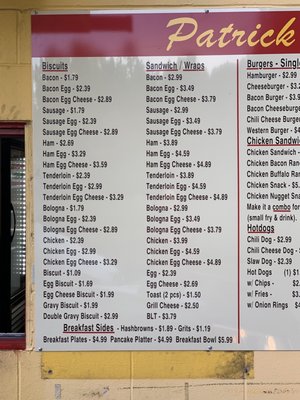 Patrick
Biscuits
Bacon - $1.79
Bacon Egg - $2.39
Bacon Egg Cheese - $2.89
Sausage - $1.79
Sausage Egg - $2.39
Sausage Egg Cheese - $2.89
Ham - $2.69
Ham Egg - $3.29
Ham Egg Cheese - $3.59
Tenderloin - $2.39
Tenderloin Egg - $2.99
Tenderloin Egg Cheese - $3.29
Bologna - $1.79
Bologna Egg - $2.39
Bologna Egg Cheese - $2.89
Chicken - $2.39
Chicken Egg - $2.99
Chicken Egg Cheese - $3.29
Biscuit - $1.09
Egg Biscuit - $1.69
Egg Cheese Biscuit - $1.99
Gravy Biscuit - $1.99
Double Gravy Biscuit - $2.99
Sandwich / Wraps
Bacon - $2.99
Bacon Egg - $3.49
Bacon Egg Cheese - $3.79
Sausage - $2.99
Sausage Egg - $3.49
Sausage Egg Cheese - $3.79
Ham - $3.89
Ham Egg - $4.59
Ham Egg Cheese - $4.89
Tenderloin - $3.89
Tenderloin Egg - $4.59
Tenderloin Egg Cheese - $4.89
Bologna - $2.99
Bologna Egg - $3.49
Bologna Egg Cheese - $3.79
Chicken - $3.99
Chicken Egg - $4.59
Chicken Egg Cheese - $4.89
Egg - $2.39
Egg Cheese - $2.69
Toast (2 pcs) - $1.50
Grill Cheese - $2.50
BLT - $3.79
Breakfast Sides - Hashbrowns - $1.89 - Grits - $1.19
Breakfast Plates - $4.99 Pancake Platter - $4.99 Breakfast Bowl $5.99
Burgers - Singl
Hamburger - $2.99
Cheeseburger - $3.2
Bacon Burger - $3.9
Bacon Cheeseburge
Chili Cheese Burger
Western Burger - $4
Chicken Sandwich
Chicken Sandwich -
Chicken Bacon Ran
Chicken Buffalo Ran
Chicken Snack - $5.
Chicken Nugget Sna
Make it a combo for
(small fry & drink).
Hotdogs
Chili Dog - $2.99
Chili Cheese Dog -
Slaw Dog - $2.39
Hot Dogs (1) $
w/ Chips - $2.
w/ Fries - $3.
w/ Onion Rings $4